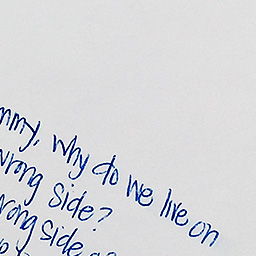 mmy, why do we live on
wrong side?
wrong side